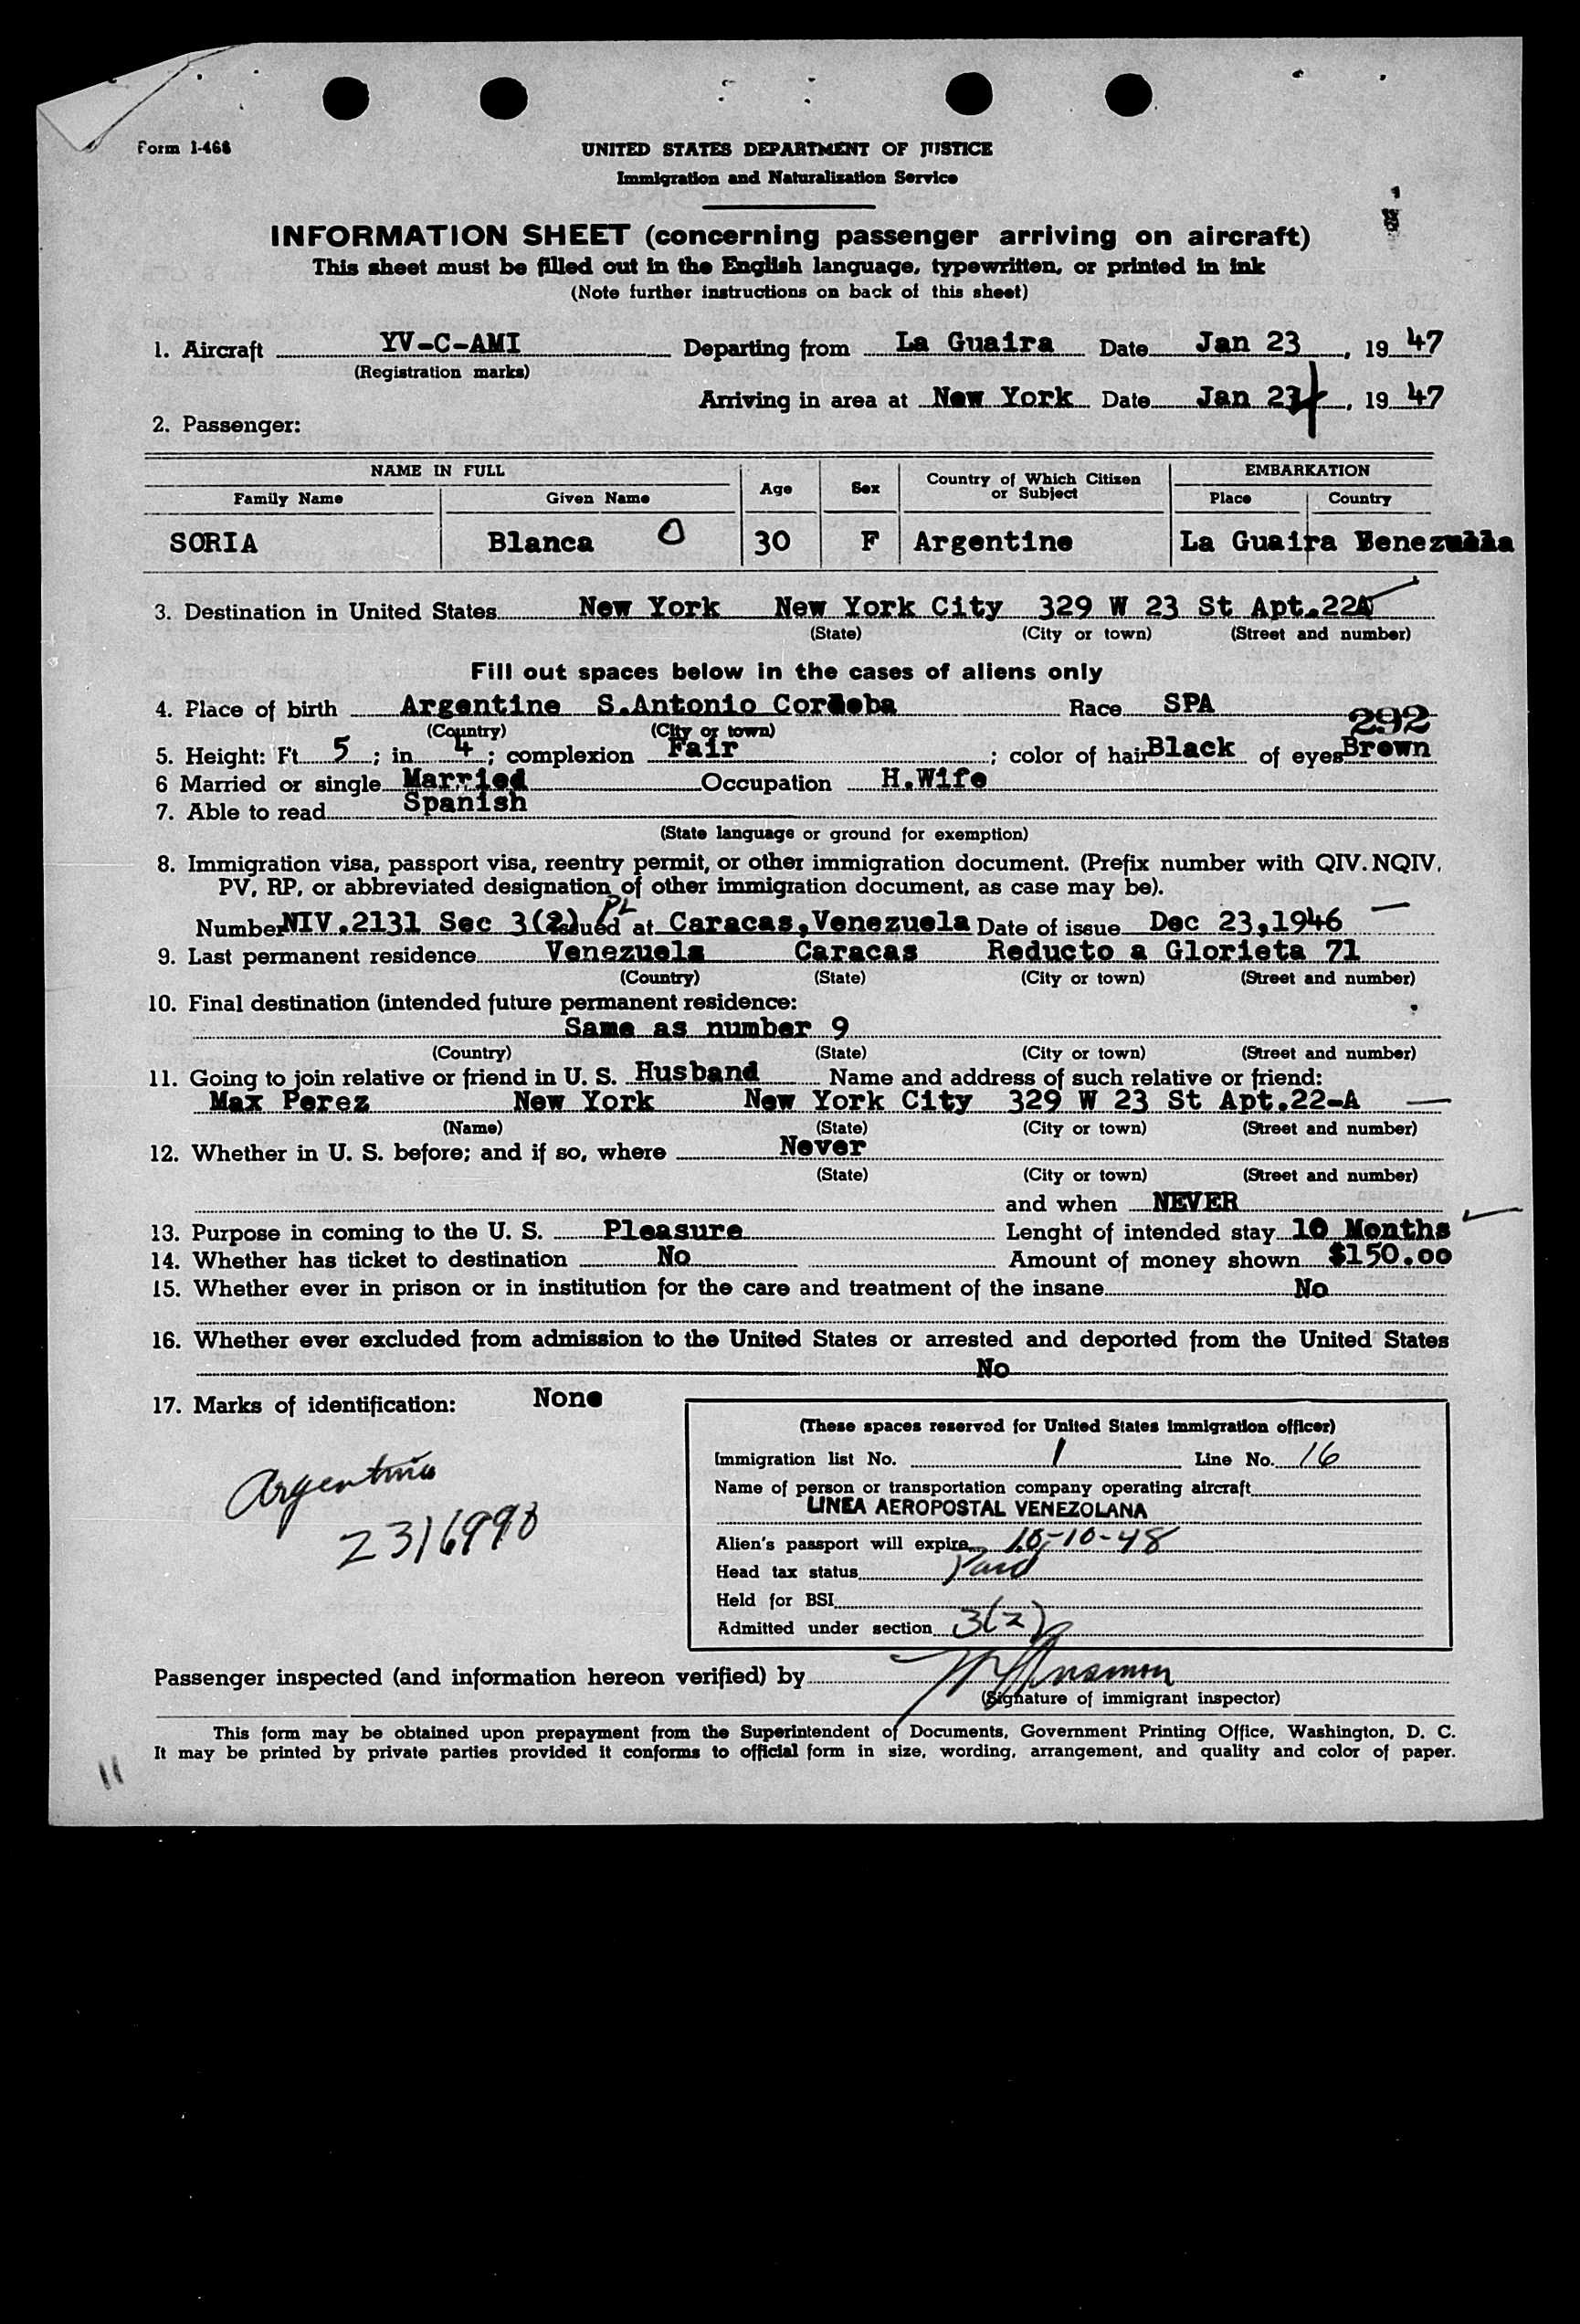 Form I-466
UNITED STATES DEPARTMENT OF JUSTICE
Immigration and Naturalization Service
INFORMATION SHEET (concerning passenger arriving on aircraft)
This sheet must be filled out in the English language, typewritten, or printed in ink
(Note further instructions on back of this sheet)
1. Aircraft YV-C-AMI Departing from La Guaira Date Jan 23, 19 47
(Registration marks)
Arriving in area at New York Date Jan 24, 19 47
2. Passenger:
NAME IN FULL Age Sex Country of Which Citizen or Subject EMBARKATION
Family Name Given Name Place Country
SORIA Blanca O 30 F Argentine La Guaira Venezuela
3. Destination in United States New York New York City 329 W 23 St Apt.22A
(State) (City or town) (Street and number)
Fill out spaces below in the cases of aliens only
4. Place of birth Argentine S.Antonio Cordoba Race SPA
(Country) (City or town) 292
5. Height: Ft 5; in 4; complexion Fair; color of hair Black of eyes Brown
6 Married or single Married Occupation H.Wife
7. Able to read Spanish
(State language or ground for exemption)
8. Immigration visa, passport visa, reentry permit, or other immigration document. (Prefix number with QIV. NQIV,
PV, RP, or abbreviated designation of other immigration document, as case may be).
Number NIV.2131 Sec 3(2) PL Issued at Caracas,Venezuela Date of issue Dec 23,1946
9. Last permanent residence Venezuela Caracas Reducto a Glorieta 71
(Country) (State) (City or town) (Street and number)
10. Final destination (intended future permanent residence:
Same as number 9
(Country) (State) (City or town) (Street and number)
11. Going to join relative or friend in U. S. Husband Name and address of such relative or friend:
Max Perez New York New York City 329 W 23 St Apt.22-A
(Name) (State) (City or town) (Street and number)
12. Whether in U. S. before; and if so, where Never
(State) (City or town) (Street and number)
and when NEVER
13. Purpose in coming to the U. S. Pleasure Lenght of intended stay 10 Months
14. Whether has ticket to destination No Amount of money shown $150.00
15. Whether ever in prison or in institution for the care and treatment of the insane No
16. Whether ever excluded from admission to the United States or arrested and deported from the United States
No
17. Marks of identification: None
(These spaces reserved for United States immigration officer)
Immigration list No. 1 Line No. 16
Name of person or transportation company operating aircraft
LINEA AEROPOSTAL VENEZOLANA
Argentina
2316990
Alien's passport will expire 10-10-48
Head tax status Paid
Held for BSI
Admitted under section 3(2)
Passenger inspected (and information hereon verified) by
(Signature of immigrant inspector)
This form may be obtained upon prepayment from the Superintendent of Documents, Government Printing Office, Washington, D. C.
It may be printed by private parties provided it conforms to official form in size, wording, arrangement, and quality and color of paper.
11